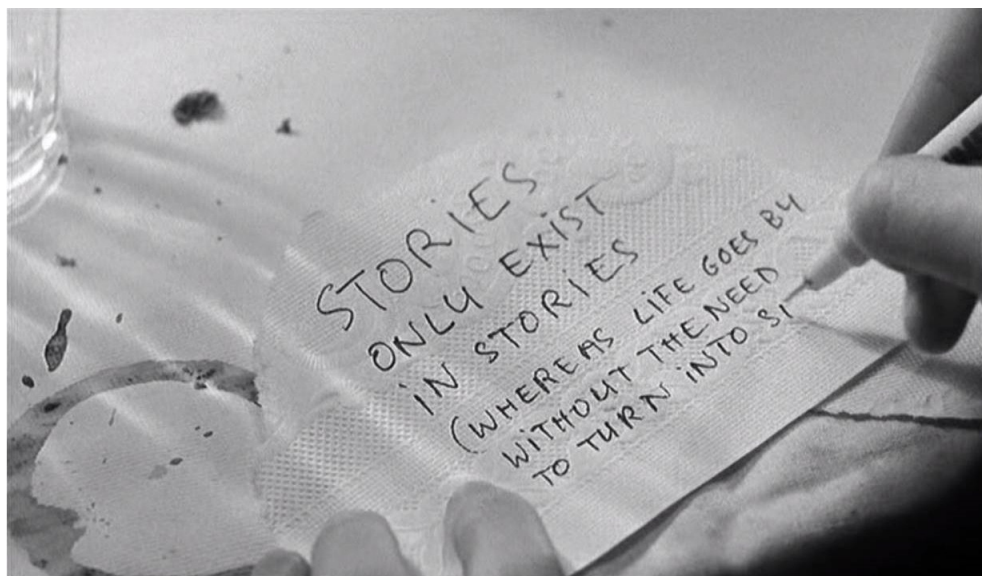 STORIES
ONLY EXIST
IN STORIES
(WHEREAS LIFE GOES BY
WITHOUT THE NEED
TO TURN INTO SI